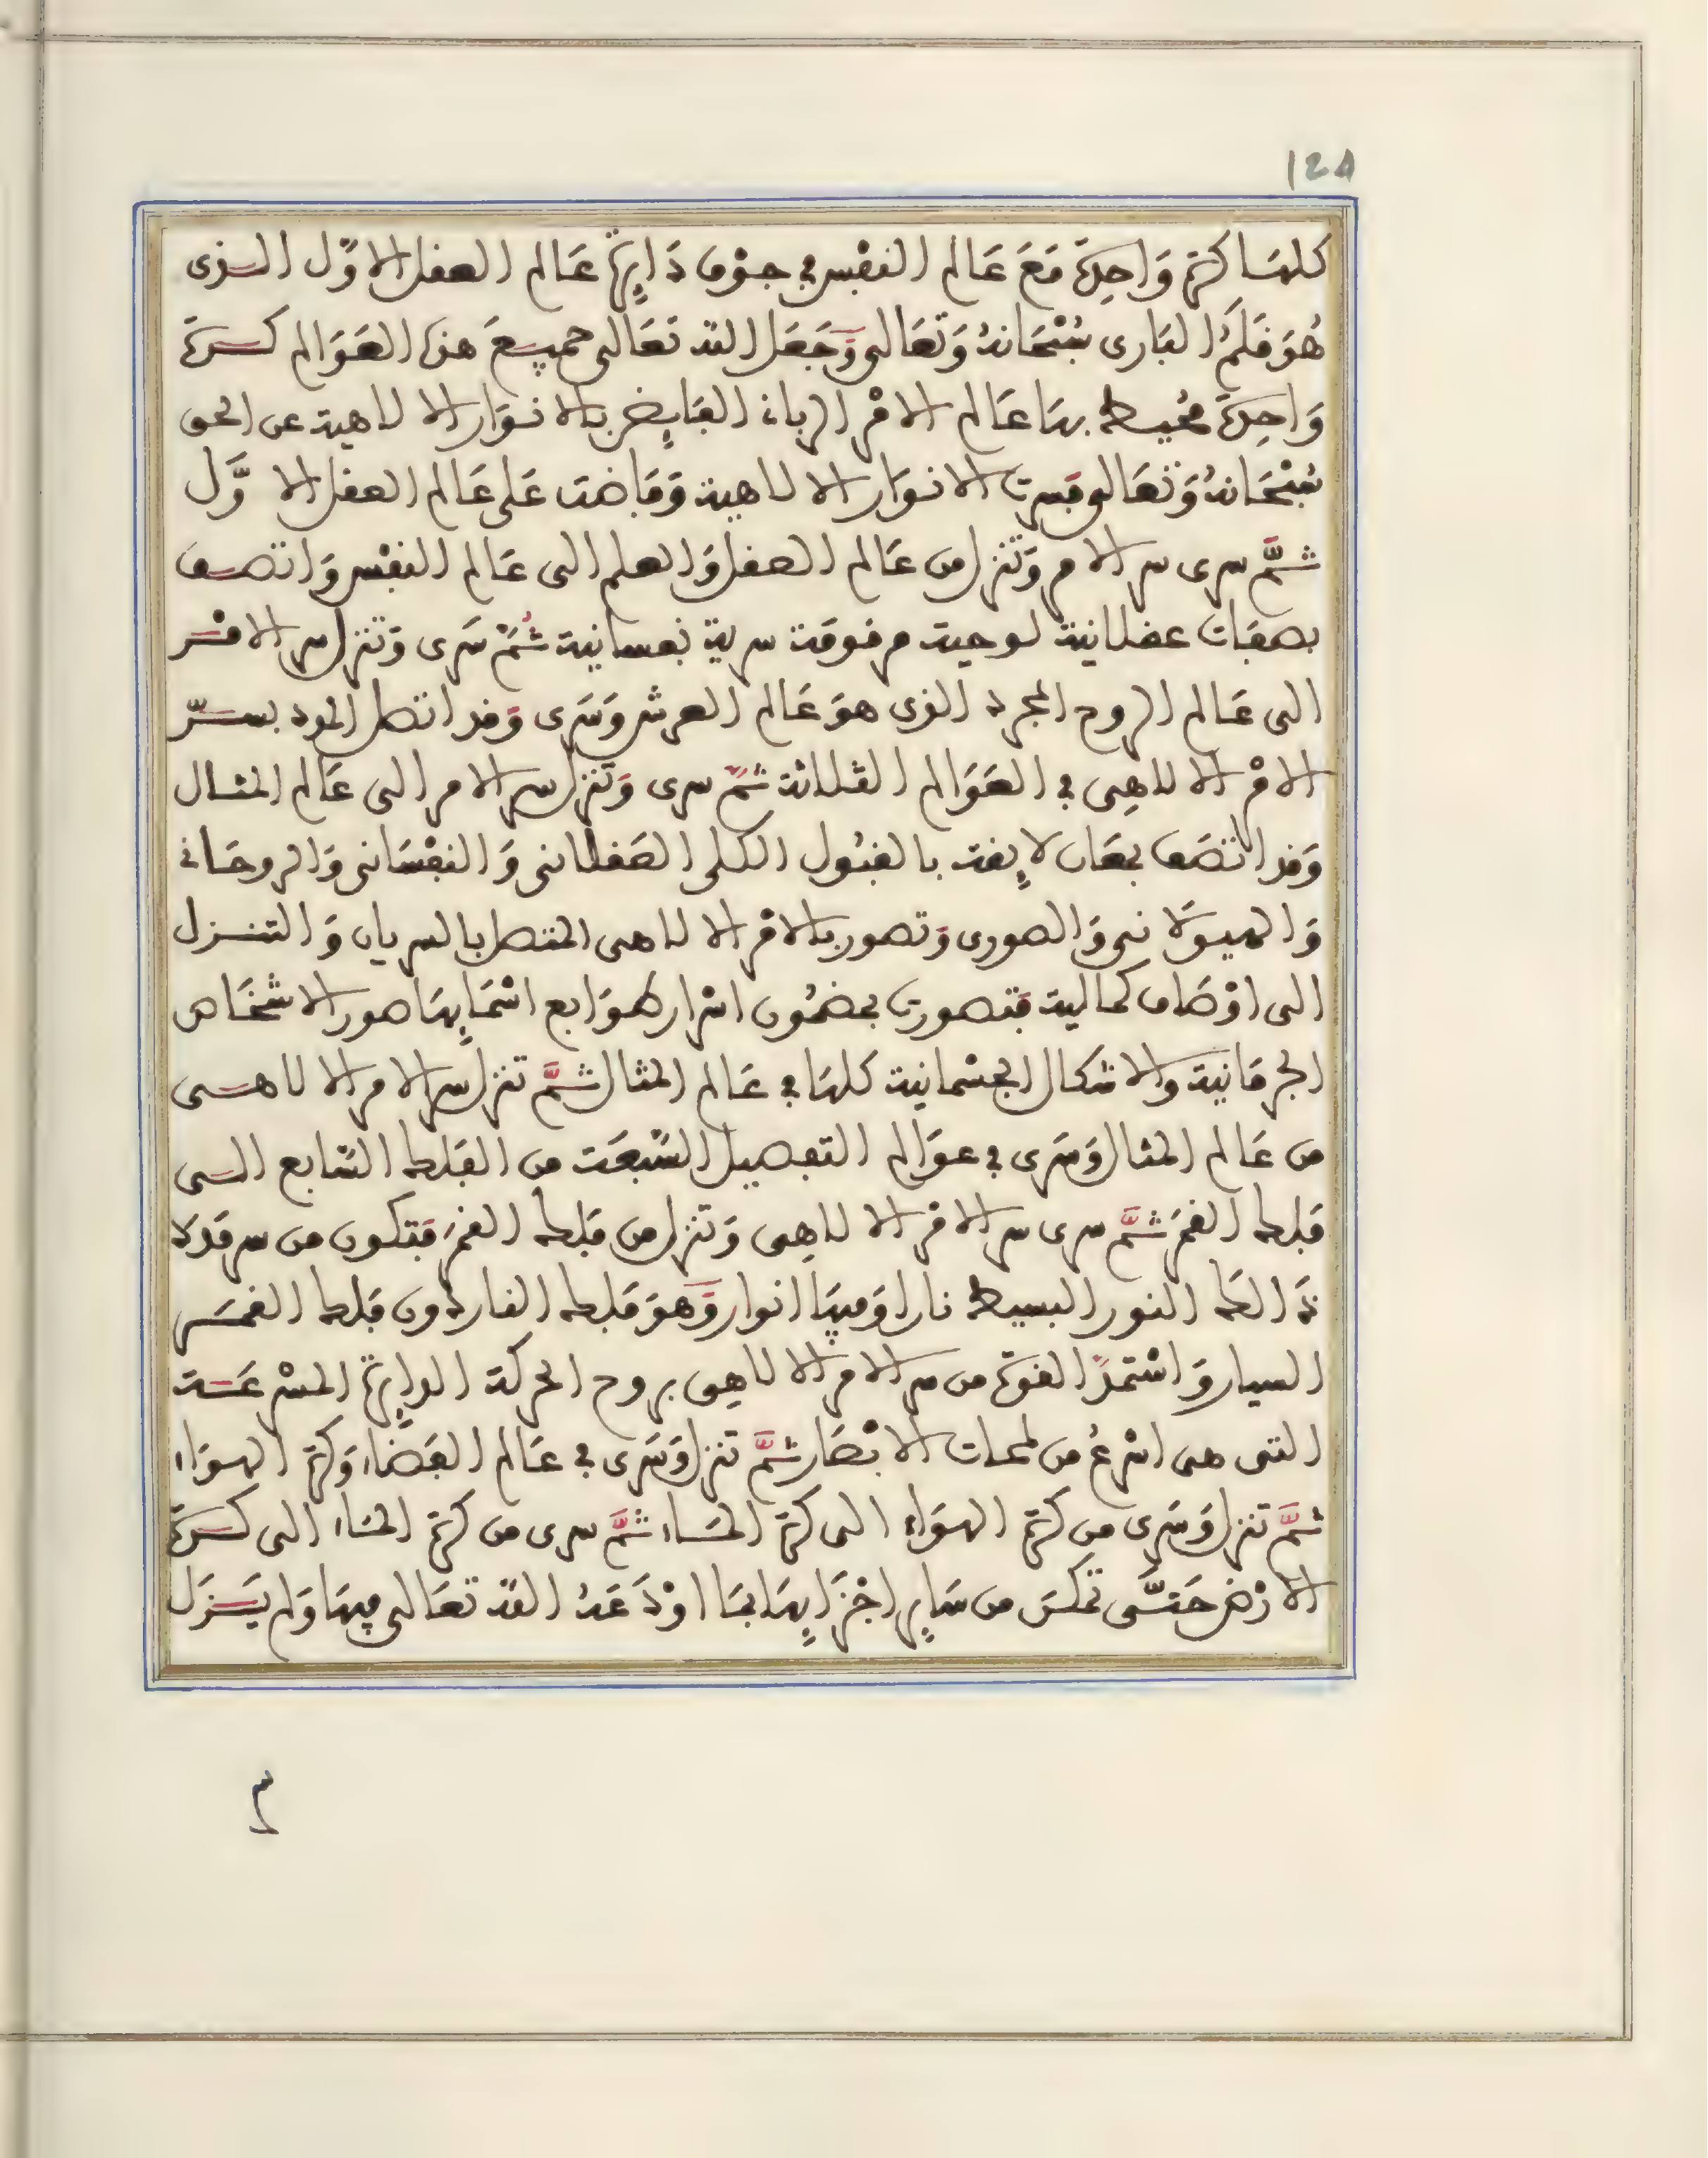 124
كلها كرة وَاحِدَة مَعَ عَالم النفْس في جوْف دَايِرة عَالم العفل الاوّل الذى
هُوَ فَلَمُ البَارى سُبْحَانهُ وَتعَالى وَجَعَل الله تعَالى جميعَ هذه العَوَالم كرة
وَاحِدَة محُيط بهَا عَالم الامْر الربانى الفَايِض بالانوَار الالاهية عن الحق
سُبْحَانهُ وَتعَالى فسرت الانوَار الالاهية وَفَاضت عَلى عَالم العفل الاوَّل
ثمَّ سرى سر الامر وَتنزل من عَالم العفل وَالعلم الى عَالم النفْس وَاتصف
بصفات عفلانية لوحية مرفومة سرية نفسانية ثُمَّ سَرى وَتنزل سر الامْر
الى عَالم الروح المجرد الذى هوَ عَالم العرش وَسَرى وَفد اتصل المدد بسرّ
الامْر الالاهِى في العَوَالم الثلاثة ثمَّ سرى وَتنزل سر الامر الى عَالم المثال
وَفد اتصَف بمعَان لايِفة بالفبُول الكلى العَفلانى وَالنفْسَانى وَالروحَانى
وَالهيوَلانى وَالصورى وَتصور بالامْر الالاهى المتصل بالسريان وَالتنزل
الى اوْصَاف كمالية فتصورت بمضمُون اسْرار طوَابع اسْمَايِهَا صور الاشخَاص
الجرمَانية والاشكال الجسْمانية كلهَا في عَالم المثال ثمَّ تنزل سر الامر الالاهى
من عَالم المثال وَسَرى في عوَالم التفصيل السّبعَة من الفلك السَّابع الى
فلك الفمَر ثمَّ سرى سر الامْر الالاهِى وَتنزل من فلك الفمَر فتكون من سر مَدَد
ذَالكَ النور البسيط نارا وَميهَا انوار وَهوَ فلك النار دون فلك الفمَر
السيار وَاسْتمدّ الفوة من سر الامر الالاهِى بروح الحركة الدايِرة المسْرعَة
التى هى اسْرعُ من لمحات الابْصَار ثمَّ تنزل وَسَرى في عَالم الفَضَاء وَكرة الهوَاء
ثمَّ تنزل وَسَرى من كرة الهوَاء الى كرة المَاء ثمَّ سرى من كرة المَاء الى كرة
الارْض حَتّى تمكنَ من سَايِر اجْزَايِهَا بمَا اوْدَعَهُ الله تعَالى فيهَا وَلم يَزَل